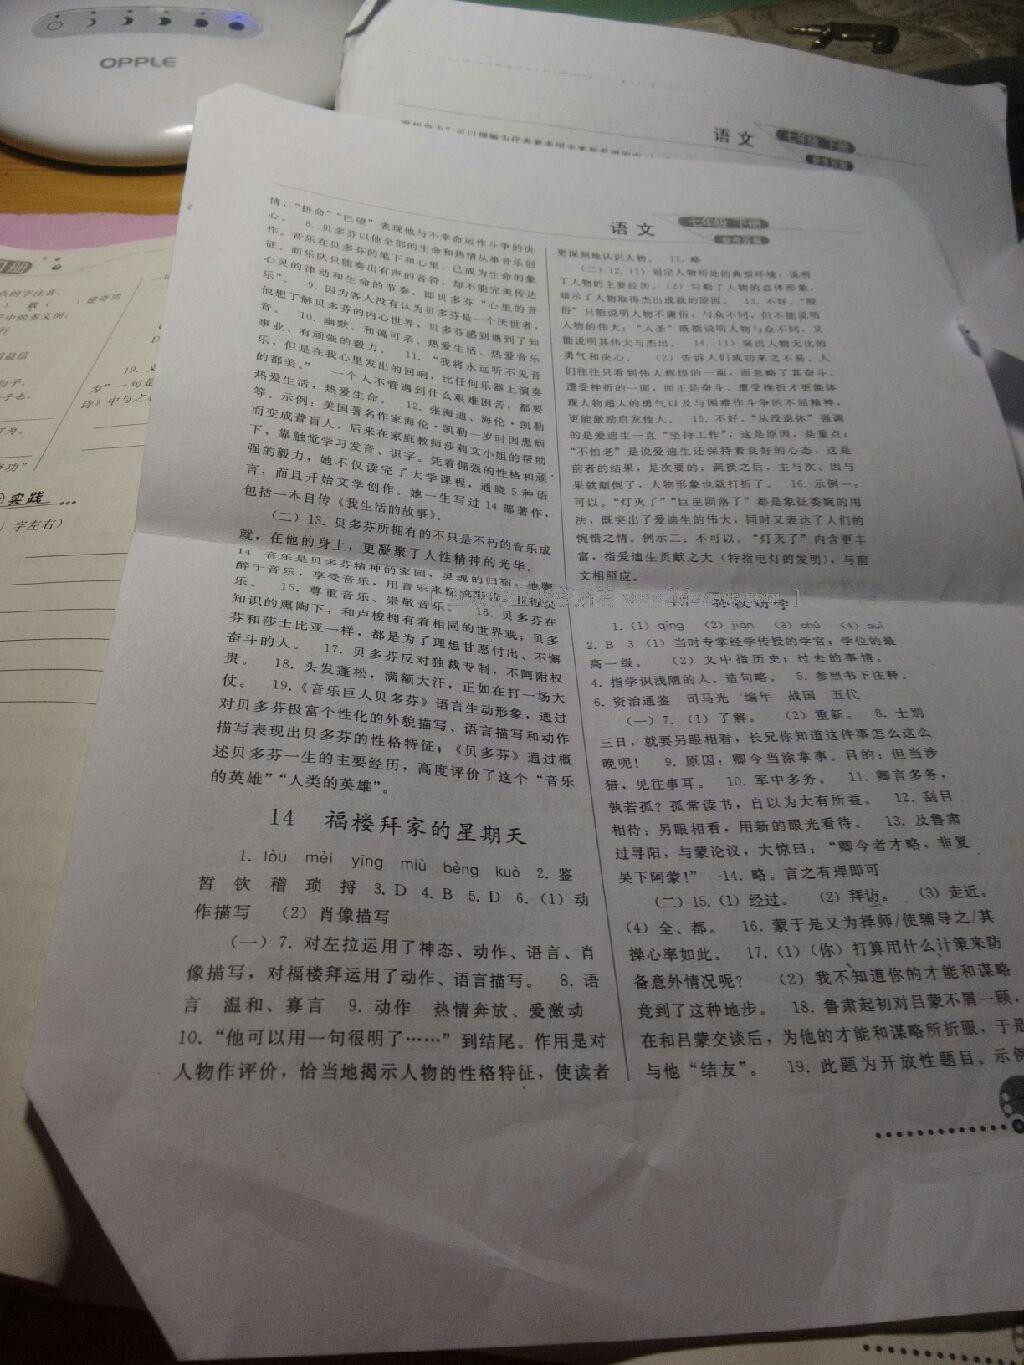 OPPLE
语文 七年级 下册
参考答案
语文 七年级 下册
参考答案
情，“拼命”“巴望”表现他与不幸命运作斗争的决
心。 8. 贝多芬以他全部的生命和热情从事音乐创
作。音乐在贝多芬的笔下和心里，已成为生命的象
征。而乐队只能奏出有声的音符，却不能完美传达
心灵的律动和生命的节奏，即贝多芬“心里的音
乐”。 9. 因为客人没有认为贝多芬是一个厌世者，
很想了解贝多芬的内心世界，贝多芬感到遇到了知
音。 10. 幽默、和蔼可亲、热爱生活、热爱音乐
事业、有顽强的毅力。 11. “我将永远听不见音
乐，但是在我心里发出的回响，比任何乐器上演奏
的都美。” 一个人不管遇到什么艰难困苦，都要
热爱生活，热爱生命。 12. 张海迪、海伦·凯勒
等。示例：美国著名作家海伦·凯勒一岁时因患病
而变成聋盲人，后来在家庭教师莎莉文小姐的帮助
下，靠触觉学习发音、识字。凭着倔强的性格和顽
强的毅力，她不仅读完了大学课程，通晓5种语
言，而且开始文学创作。她一生写过14部著作，
包括一本自传《我生活的故事》。
（二）13. 贝多芬所拥有的不只是不朽的音乐成
就，在他的身上，更凝聚了人性精神的光华。
14. 音乐是贝多芬精神的家园，灵魂的归宿，他陶
醉于音乐，享受音乐，用音乐来
乐。 15. 尊重音乐、崇敬音乐。 16. 贝多芬在
知识的熏陶下，和卢梭拥有着相同的世界观；贝多
芬和莎士比亚一样，都是为了理想甘愿付出、不懈
奋斗的人。 17. 贝多芬反对独裁专制，不阿附权
贵。 18. 头发蓬松，满额大汗，正如在打一场大
仗。 19.《音乐巨人贝多芬》语言生动形象，通过
对贝多芬极富个性化的外貌描写、语言描写和动作
描写表现出贝多芬的性格特征；《贝多芬》通过概
述贝多芬一生的主要经历，高度评价了这个“音乐
的英雄”“人类的英雄”。
14 福楼拜家的星期天
1. lòu mèi yǐng miù bèng kuò 2. 鉴
皙 钦 稽 琐 捋 3. D 4. B 5. D 6.（1）动
作描写 （2）肖像描写
（一）7. 对左拉运用了神态、动作、语言、肖
像描写，对福楼拜运用了动作、语言描写。 8. 语
言 温和、寡言 9. 动作 热情奔放、爱激动
10. “他可以用一句很明了……”到结尾。作用是对
人物作评价，恰当地揭示人物的性格特征，使读者
更深刻地认识人物。 11. 略
（二）12.（1）划定人物所处的典型环境，说明
了人物的主要经历。（2）勾勒了人物的总体形象，
暗示了人物取得杰出成就的原因。 13. 不好。“脱
俗”只能说明人物不庸俗，与众不同，但不能说明
人物的伟大；“入圣”既能说明人物与众不同，又
能说明其伟大与杰出。 14.（1）突出人物无比的
勇气和决心。 （2）告诉人们成功来之不易。人
们往往只看到伟人辉煌的一面，而忽略了其奋斗、
遭受挫折的一面，而正是奋斗、遭受挫折才更能体
现人物超人的勇气以及与困难作斗争的不屈精神，
更能激励启发他人。 15. 不好。“从没退休”强调
的是爱迪生一直“坚持工作”，这是原因，是重点；
“不怕老”是说爱迪生还保持着良好的心态，这是
前者的结果，是次要的，调换之后，主与次、因与
果就颠倒了，人物形象也就打折了。 16. 示例一：
可以。“灯灭了”“巨星陨落了”都是象征委婉的用
法，既突出了爱迪生的伟大，同时又表达了人们的
惋惜之情。例示二：不可以。“灯灭了”内含更丰
富，指爱迪生贡献之大（特指电灯的发明），与前
文相照应。
1.（1）qīng （2）jiàn （3）chú （4）suì
2. B 3.（1）当时专掌经学传授的学官；学位的最
高一级。 （2）文中指历史；过去的事情。
4. 指学识浅陋的人。造句略。 5. 参照书下注释。
6. 资治通鉴 司马光 编年 战国 五代
（一）7.（1）了解。 （2）重新。 8. 士别
三日，就要另眼相看，长兄你知道这件事怎么这么
晚呢！ 9. 原因：卿今当涂掌事。目的：但当涉
猎，见往事耳。 10. 军中多务。 11. 卿言多务，
孰若孤？孤常读书，自以为大有所益。 12. 刮目
相待；另眼相看，用新的眼光看待。 13. 及鲁肃
过寻阳，与蒙论议，大惊曰：“卿今者才略，非复
吴下阿蒙！” 14. 略。言之有理即可
（二）15.（1）经过。 （2）拜访。 （3）走近。
（4）全、都。 16. 蒙于是又为择师/使辅导之/其
操心率如此。 17.（1）（你）打算用什么计策来防
备意外情况呢？ （2）我不知道你的才能和谋略
竟到了这种地步。 18. 鲁肃起初对吕蒙不屑一顾，
在和吕蒙交谈后，为他的才能和谋略所折服，于是
与他“结友”。 19. 此题为开放性题目。示例